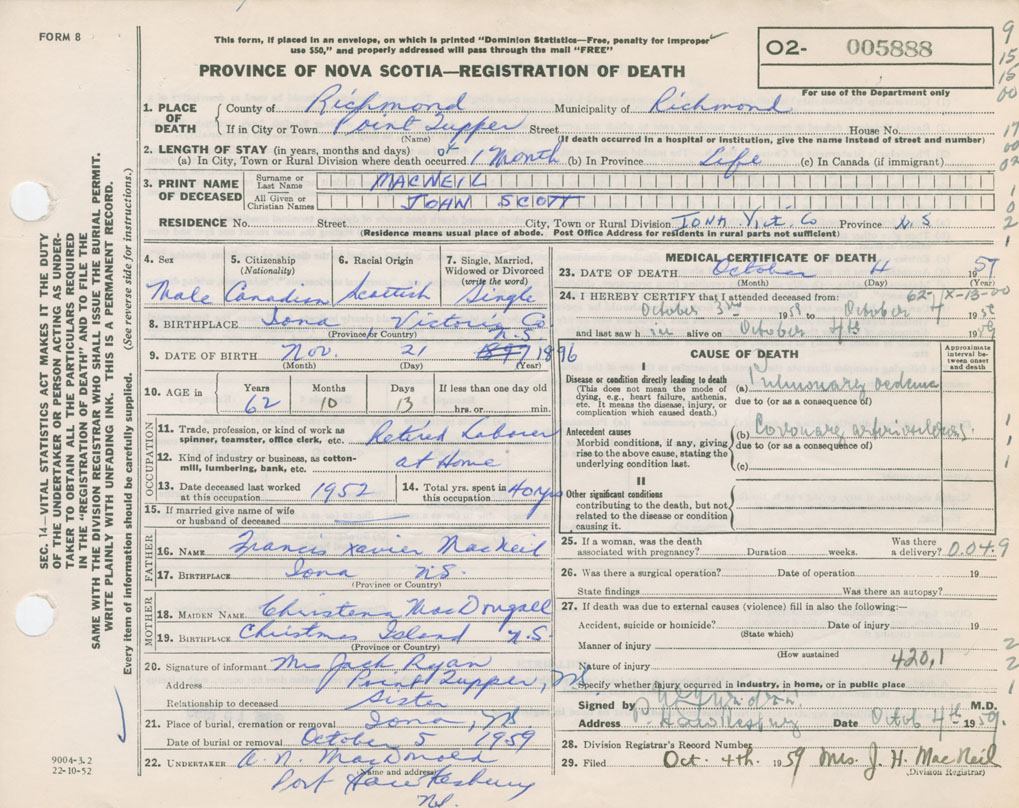 FORM 8
This form, if placed in an envelope, on which is printed "Dominion Statistics—Free, penalty for improper
use $50," and properly addressed will pass through the mail "FREE"
PROVINCE OF NOVA SCOTIA—REGISTRATION OF DEATH
O2- 005888
For use of the Department only
9
15
15
00
17
00
02
1
0
2
1
SEC. 14—VITAL STATISTICS ACT MAKES IT THE DUTY
OF THE UNDERTAKER OR PERSON ACTING AS UNDER-
TAKER TO OBTAIN ALL THE PARTICULARS REQUIRED
IN THE "REGISTRATION OF DEATH" AND TO FILE THE
SAME WITH THE DIVISION REGISTRAR WHO SHALL ISSUE THE BURIAL PERMIT.
WRITE PLAINLY WITH UNFADING INK. THIS IS A PERMANENT RECORD.
Every item of information should be carefully supplied. (See reverse side for instructions.)
1. PLACE OF DEATH County of Richmond Municipality of Richmond
If in City or Town Point Tupper Street House No.
(Name) (If death occurred in a hospital or institution, give the name instead of street and number)
2. LENGTH OF STAY (in years, months and days)
(a) In City, Town or Rural Division where death occurred 1 Month (b) In Province Life (c) In Canada (if immigrant)
3. PRINT NAME OF DECEASED Surname or Last Name MACNEIL
All Given or Christian Names JOHN SCOTT
RESIDENCE No. Street City, Town or Rural Division IONA Vict. Co Province N S
(Residence means usual place of abode. Post Office Address for residents in rural parts not sufficient)
4. Sex Male
5. Citizenship (Nationality) Canadian
6. Racial Origin Scottish
7. Single, Married, Widowed or Divorced (write the word) Single
8. BIRTHPLACE Iona, Victoria Co N.S.
(Province or Country)
9. DATE OF BIRTH Nov. 21 1896
(Month) (Day) (Year)
10. AGE in Years Months Days If less than one day old
62 10 13 hrs. or min.
OCCUPATION
11. Trade, profession, or kind of work as spinner, teamster, office clerk, etc. Retired Laborer
12. Kind of industry or business, as cotton-mill, lumbering, bank, etc. at Home
13. Date deceased last worked at this occupation 1952
14. Total yrs. spent in this occupation 40 yrs
15. If married give name of wife or husband of deceased
FATHER
16. NAME Francis Xavier MacNeil
17. BIRTHPLACE Iona N.S.
(Province or Country)
MOTHER
18. MAIDEN NAME Christena MacDougall
19. BIRTHPLACE Christmas Island N.S.
(Province or Country)
20. Signature of informant Mrs Jack Ryan
Address Point Tupper, NS
Relationship to deceased Sister
21. Place of burial, cremation or removal Iona, NS
Date of burial or removal October 5 1959
22. UNDERTAKER A. N. MacDonald
(Name and address) Port Hawkesbury
NS.
9004-3.2
22-10-52
MEDICAL CERTIFICATE OF DEATH
23. DATE OF DEATH October 4 1959
(Month) (Day) (Year)
62-X-13-00
24. I HEREBY CERTIFY that I attended deceased from:
October 3rd 1959 to October 4 1959
and last saw him alive on October 4th 1959
CAUSE OF DEATH
Approximate interval be-tween onset and death
I
Disease or condition directly leading to death
(This does not mean the mode of dying, e.g., heart failure, asthenia, etc. It means the disease, injury, or complication which caused death.)
(a) Pulmonary oedema
due to (or as a consequence of)
Antecedent causes
Morbid conditions, if any, giving rise to the above cause, stating the underlying condition last.
(b) Coronary arteriosclerosis
due to (or as a consequence of)
(c)
1
1
1
II
Other significant conditions
contributing to the death, but not related to the disease or condition causing it.
25. If a woman, was the death associated with pregnancy? Duration weeks. Was there a delivery? 0.049
26. Was there a surgical operation? Date of operation 19
State findings Was there an autopsy?
27. If death was due to external causes (violence) fill in also the following:—
Accident, suicide or homicide? Date of injury 19
(State which)
Manner of injury
(How sustained)
420,1
Nature of injury
Specify whether injury occurred in industry, in home, or in public place
2
2
1
Signed by M.D.
Address Pt Hawkesbury Date Octob 4th 1959.
28. Division Registrar's Record Number
29. Filed Oct. 4th. 1959 Mrs. J. H. MacNeil
(Division Registrar)